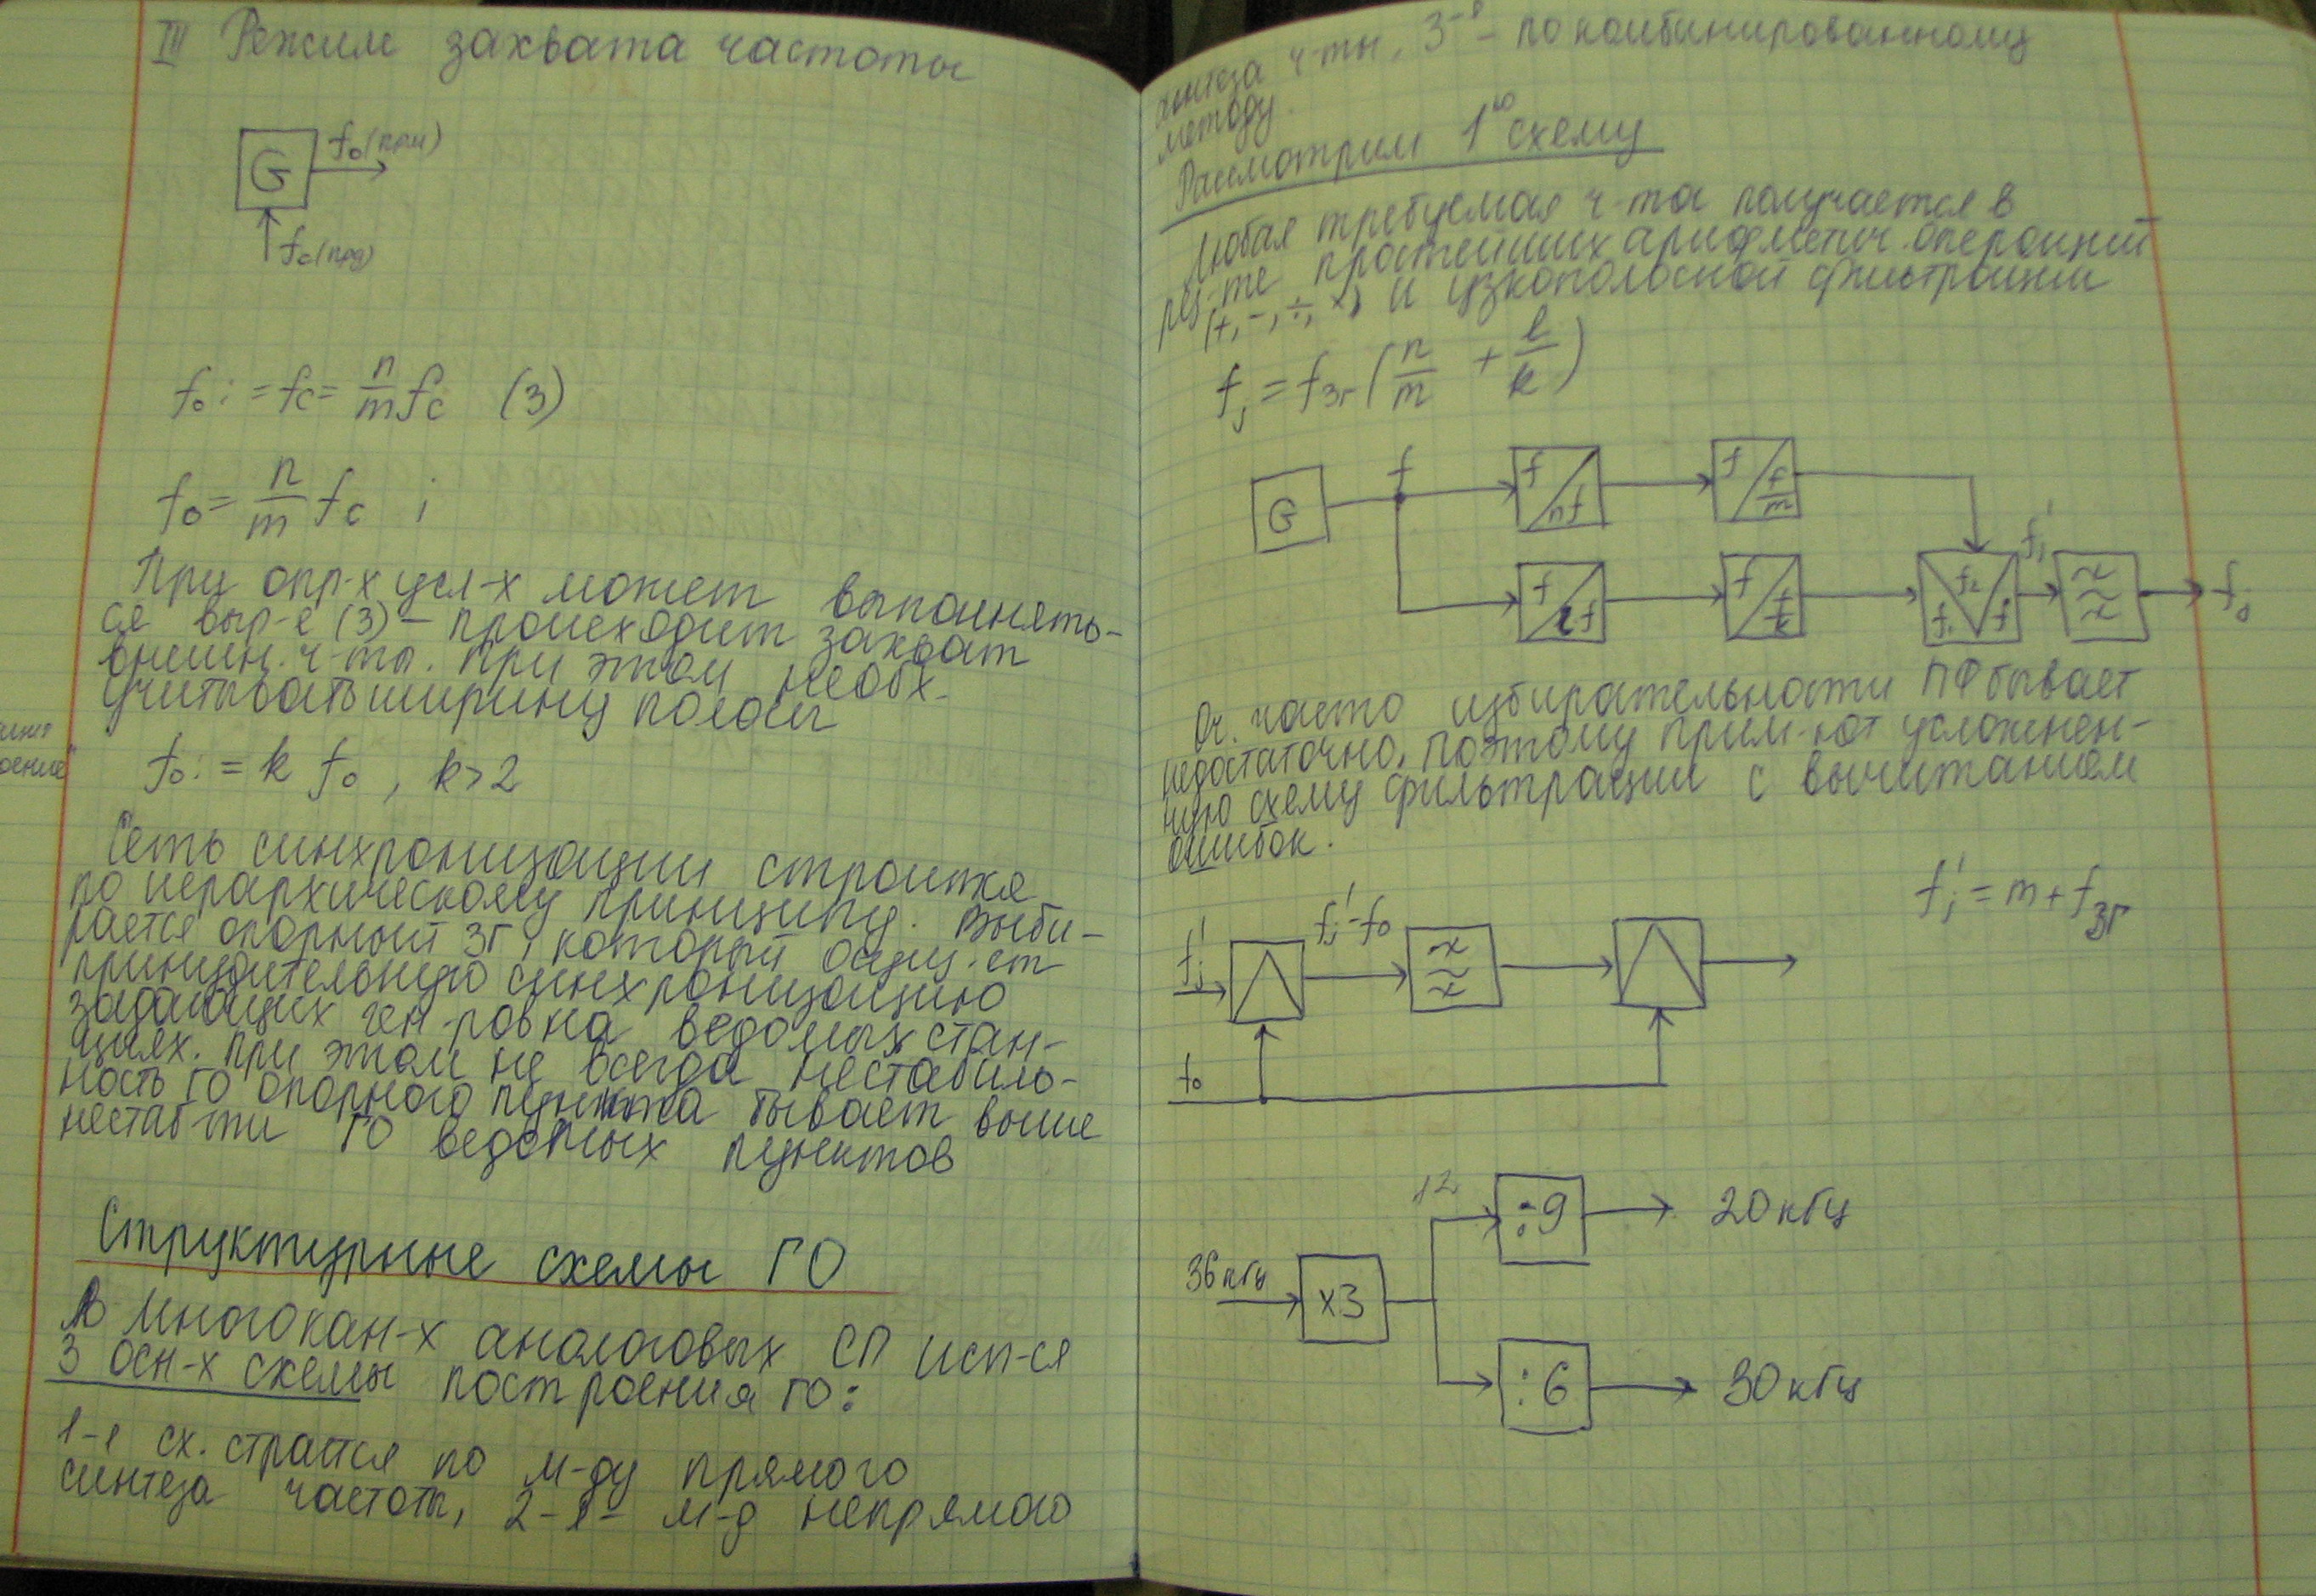 III Режим захвата частоты
G
f₀(прм)
f₀(прд)
f₀i = fc = n/m fc (3)
f₀ = n/m fc ;
При опр-х усл-х может выполнять-
ся выр-е (3) – происходит захват
внешн. ч-ты. При этом необх.
учитывать ширину полосы
f₀i = k f₀ , k>2
Сеть синхронизации строится
по иерархическому принципу. Выби-
рается опорный ЗГ, который осущ.ет
принудительную синхронизацию
задающих ген-ров на ведомых стан-
циях. При этом не всегда нестабиль-
ность ГО опорного пункта бывает выше
нестаб-ти ГО ведомых пунктов
Структурные схемы ГО
В многокан-х аналоговых СП исп-ся
3 осн-х схемы построения ГО:
1-я сх. строится по м-ду прямого
синтеза частоты, 2-я – м-д непрямого
синтеза ч-ты, 3-я – по комбинированному
методу.
Рассмотрим 1ю схему
Любая требуемая ч-та получается в
рез-те простейших арифметич. операций
(+, -, ÷, ×) и узкополосной фильтрации
fj = fЗГ (n/m + l/k)
G
f
f/nf
f/(f/m)
f/lf
f/(f/k)
f₁ f₂ f
fj'
fj
Оч. часто избирательности ПФ бывает
недостаточно, поэтому прим-ют усложнен-
ную схему фильтрации с вычитанием
ошибок.
fj' = m + fЗГ
fj'
fj'-f₀
f₀
36кГц
×3
12
:9
20 кГц
:6
30 кГц